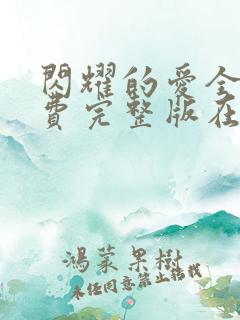 閃耀的愛全
費完整版在
鴻蒙果樹
未經同意禁止轉載